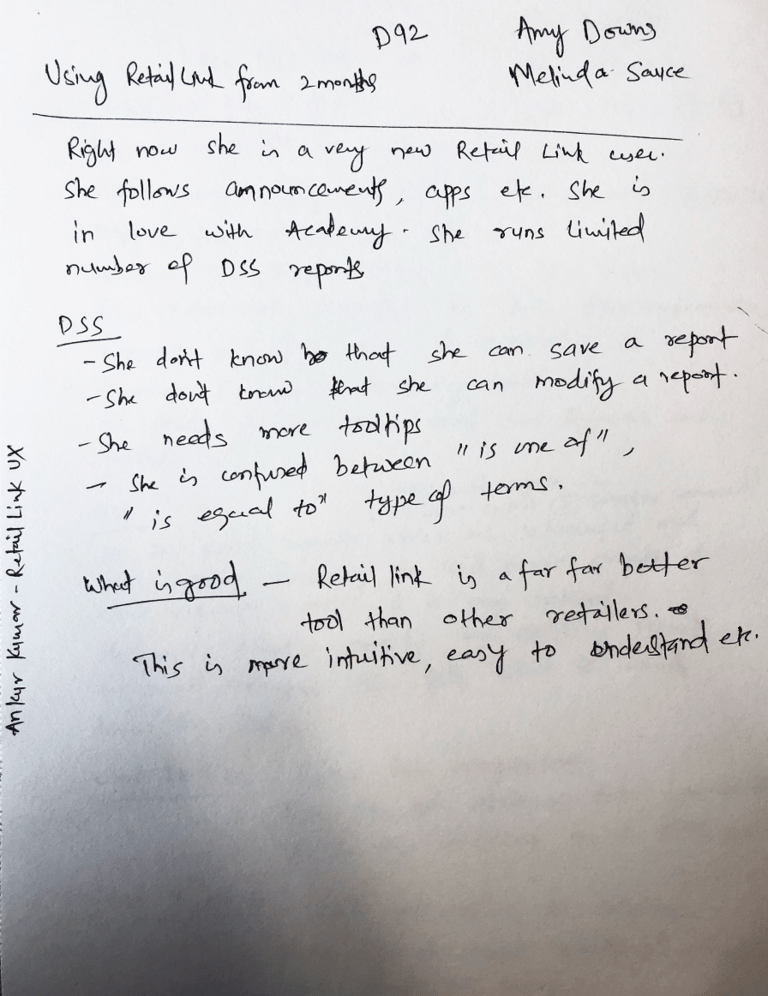 D92
Amy Downs
Using Retail Link from 2 months
Melinda Sayce
Right now she is a very new Retail Link user.
She follows announcements, apps etc. She is
in love with Academy. She runs limited
number of DSS reports
DSS
- She don't know that she can save a report
- She don't know that she can modify a report.
- She needs more tooltips
- She is confused between "is one of",
"is equal to" type of terms.
What is good - Retail link is a far far better
tool than other retailers.
This is more intuitive, easy to understand etc.
Ankur Kumar - Retail Link UX